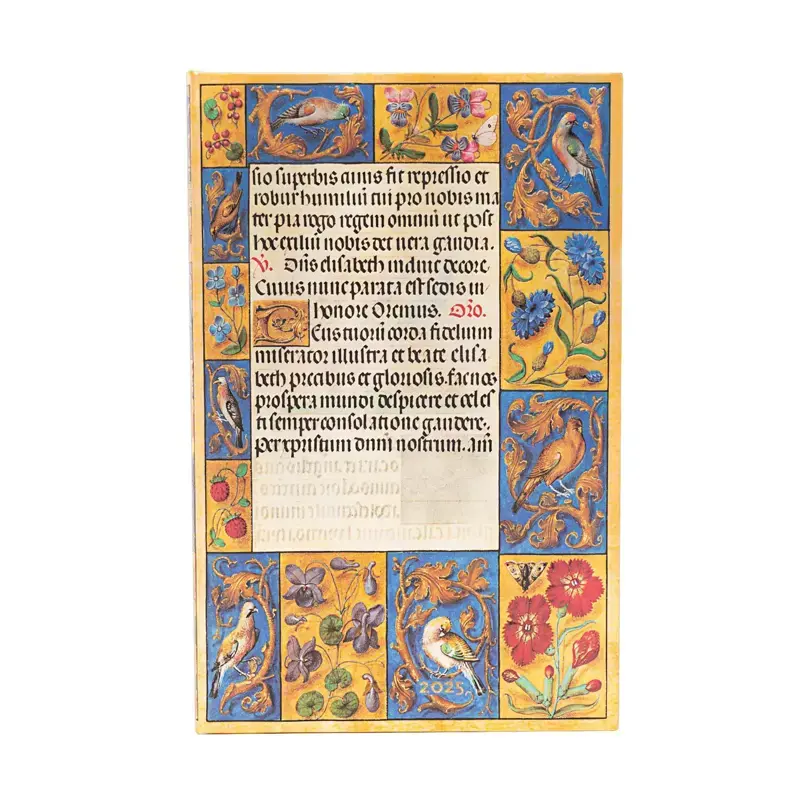 sio superbis cuius fit repressio et
robur humiliū cui pro nobis ma
ter pia rogo regem omniū ut post
hoc exiliū nobis det vera gaudia.
V. Dn̄s elisabeth induit decore
Cuius nunc parata est sedis in
honore Oremus. Oro.
Deus tuorū corda fidelium
miserator illustra et beate elisa
beth precibus et gloriosis. fac nos
prospera mundi despicere et celes
ti semper consolatione gaudere.
Per xpristum dn̄m nostrum. am̄
2025